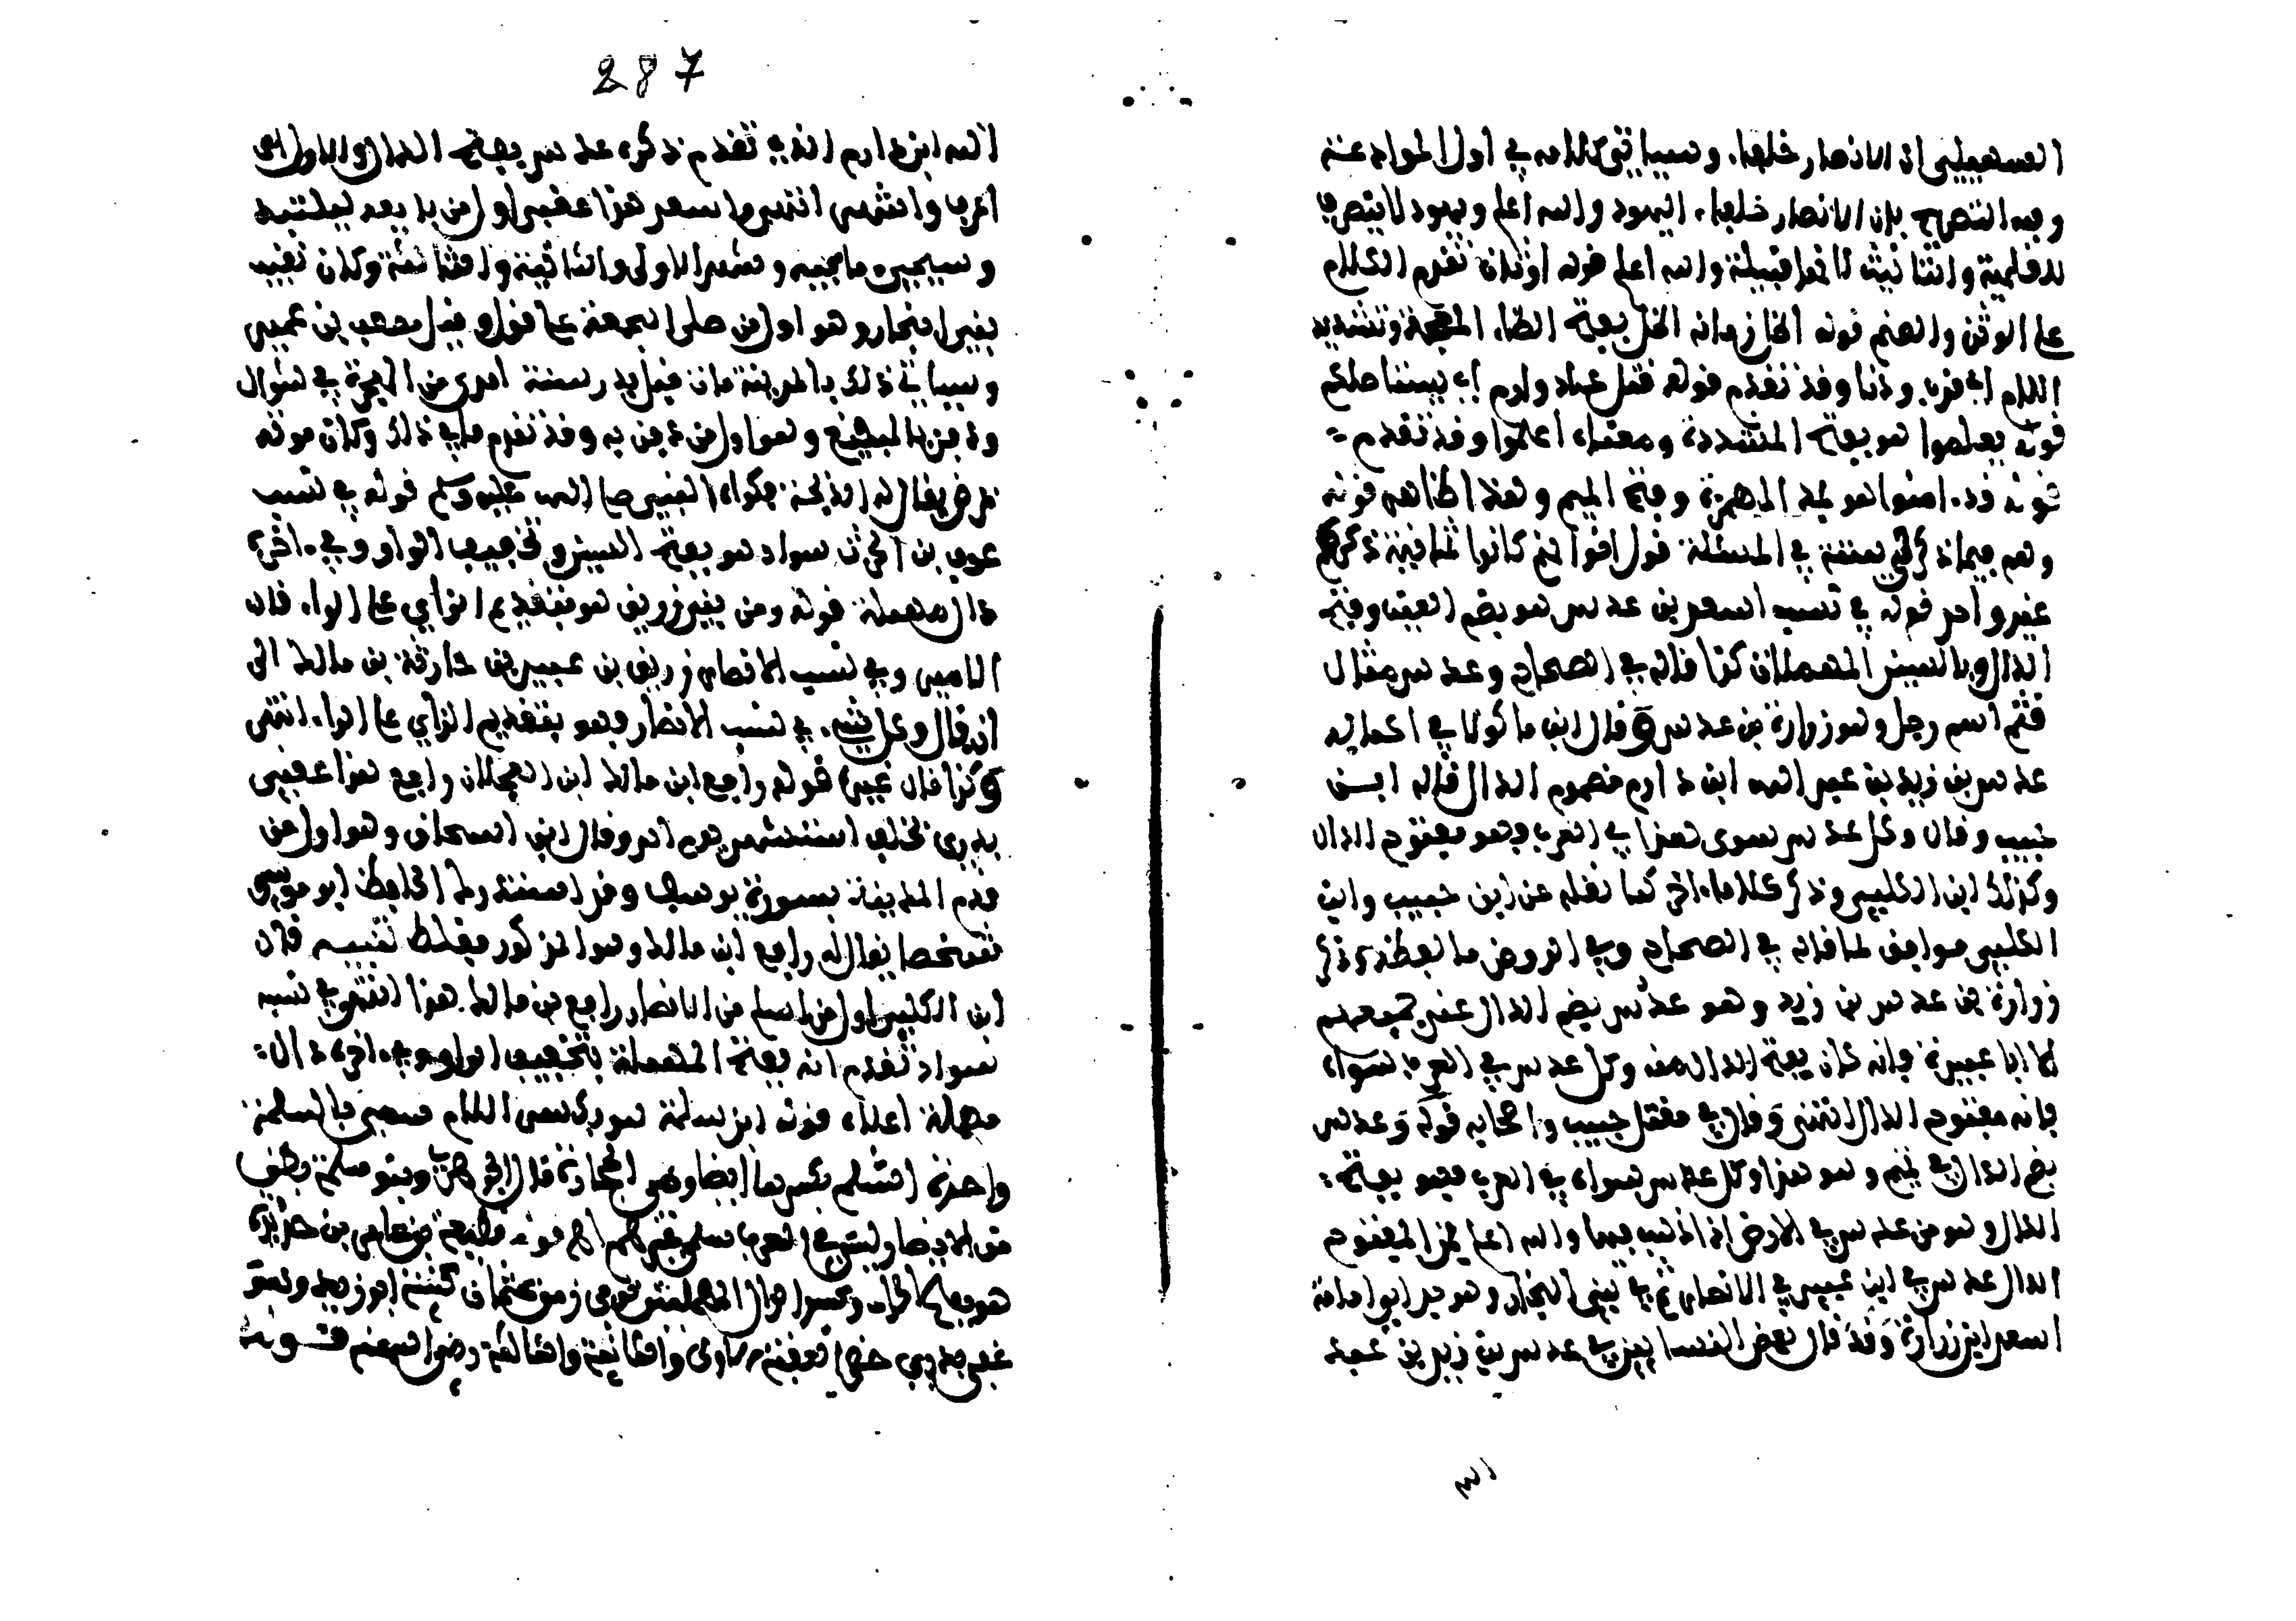 السهيلي ان الانصار خلفاء وسياتي كلامه في اول المواد عنه
وبعه التصريح بان الانصار خلفاء اليهود والله اعلم ويهود لا ينصرف
للعلمية والتانيث لانها قبيلة والله اعلم قوله اوثان تقدم الكلام
على الوثن والصنم قوله اظل زمانه اظل بفتح الظاء المعجمة وتشديد
اللام اي قرب ودنا وقد تقدم قوله قتل عاد وارم اي يستاصلكم
قوله تعلموا هو بفتح المشددة ومعناه اعلموا وقد تقدم
قوله قد امنوا هو بمد الهمزة وفتح الميم وهذا ظاهر قوله
وهم فيما ذكر لي ستة في المسئلة قول اخر انهم كانوا ثمانية ذكرهم
غير واحد قوله في نسب اسعد بن عدس هو بضم العين وفتح
الدال وبالسين المهملات كذا قاله في الصحاح وعدس مثال
قثم اسم رجل وهو زرارة بن عدس وقال ابن ماكولا في اكماله
عدس بن زيد بن عبد الله ابن دارم مضموم الدال قاله ابن
حبيب وقال وكل عدس سوى هذا في العرب فهو مفتوح الدال
وكذلك ابن الكلبي وذكر كلاما اخر كما نقله عن ابن حبيب وابن
الكلبي موافق لما قاله في الصحاح وفي الروض ما لفظه ذكر
زرارة بن عدس بن زيد وهو عدس بضم الدال عند جميعهم
الا ابا عبيدة فانه كان يفتح الدال منه وكل عدس في العرب سواه
فانه مفتوح الدال انتهى وقال في مقتل حبيب واصحابه قوله وعدس
بضم الدال في تميم وهو هذا وكل عدس سواه في العرب فهو بفتح
الدال وهو من عدس في الارض اذا ذهب فيها والله اعلم فمن المفتوح
الدال عدس ابن عبيد في الانصار ثم في بني النجار وهو جد ابو امامة
اسعد ابن زرارة وقد قال بعض النسابين في عدس بن زيد بن عبد
الله
287
الله ابن دارم الذي تقدم ذكره عدس بفتح الدال والاول
اعرف واشهر انتهى واسعد هذا عقبي اول من بايع ليلتئذ
وسيجيء ما فيه وشهد الاولى والثانية والثالثة وكان نقيب
بني النجار وهو اول من صلى الجمعة على قول وقيل مصعب بن عمير
وسياتي ذلك بالمدينة مات قبل بدر سنة احدى من الهجرة في شوال
ودفن بالبقيع وهو اول من دفن به وقد تقدم ما في ذلك وكان موته
بمرض يقال له الذبحة فكواه النبي صلى الله عليه وسلم قوله في نسب
عوف بن الحرث سواد هو بفتح السين وتخفيف الواو وفي اخره
دال مهملة قوله ومن بني زريق هو بتقديم الزاي على الراء قال
الامير وفي نسب الانصار زريق بن عبد بن حارثة بن مالك الى
ان قال وكل شيء في نسب الانصار فهو بتقديم الزاي على الراء انتهى
وكذا قال غيره قوله رافع ابن مالك ابن العجلان رافع هذا عقبي
بدري بخلف استشهد يوم احد وقال ابن اسحاق وهو اول من
قدم المدينة بسورة يوسف وقد استدرك الحافظ ابو موسى
شخصا يقال له رافع ابن مالك وهو المذكور فغلط تنبيه قال
ابن الكلبي اول من اسلم من الانصار رافع بن مالك هذا انتهى في نسبه
سواد تقدم انه بفتح المهملة بتخفيف الواو وفي اخره دال
مهملة اعلاه قوله ابن سلمة هو بكسر اللام سمي بالسلمة
واحدة السلم بكسرها ايضا وهي الحجارة قال الجوهري وبنو سلمة بطن
من الانصار وليس في العرب سلمة غيرهم اهـ قوله قطبة بن عامر بن حديدة
هو بفتح الحاء وكسر الدال المهملتين توفي زمن عثمان كنيته ابو زيد وهو
عقبي بدري حضر العقبة الاولى والثانية والثالثة رضي الله عنه قوله